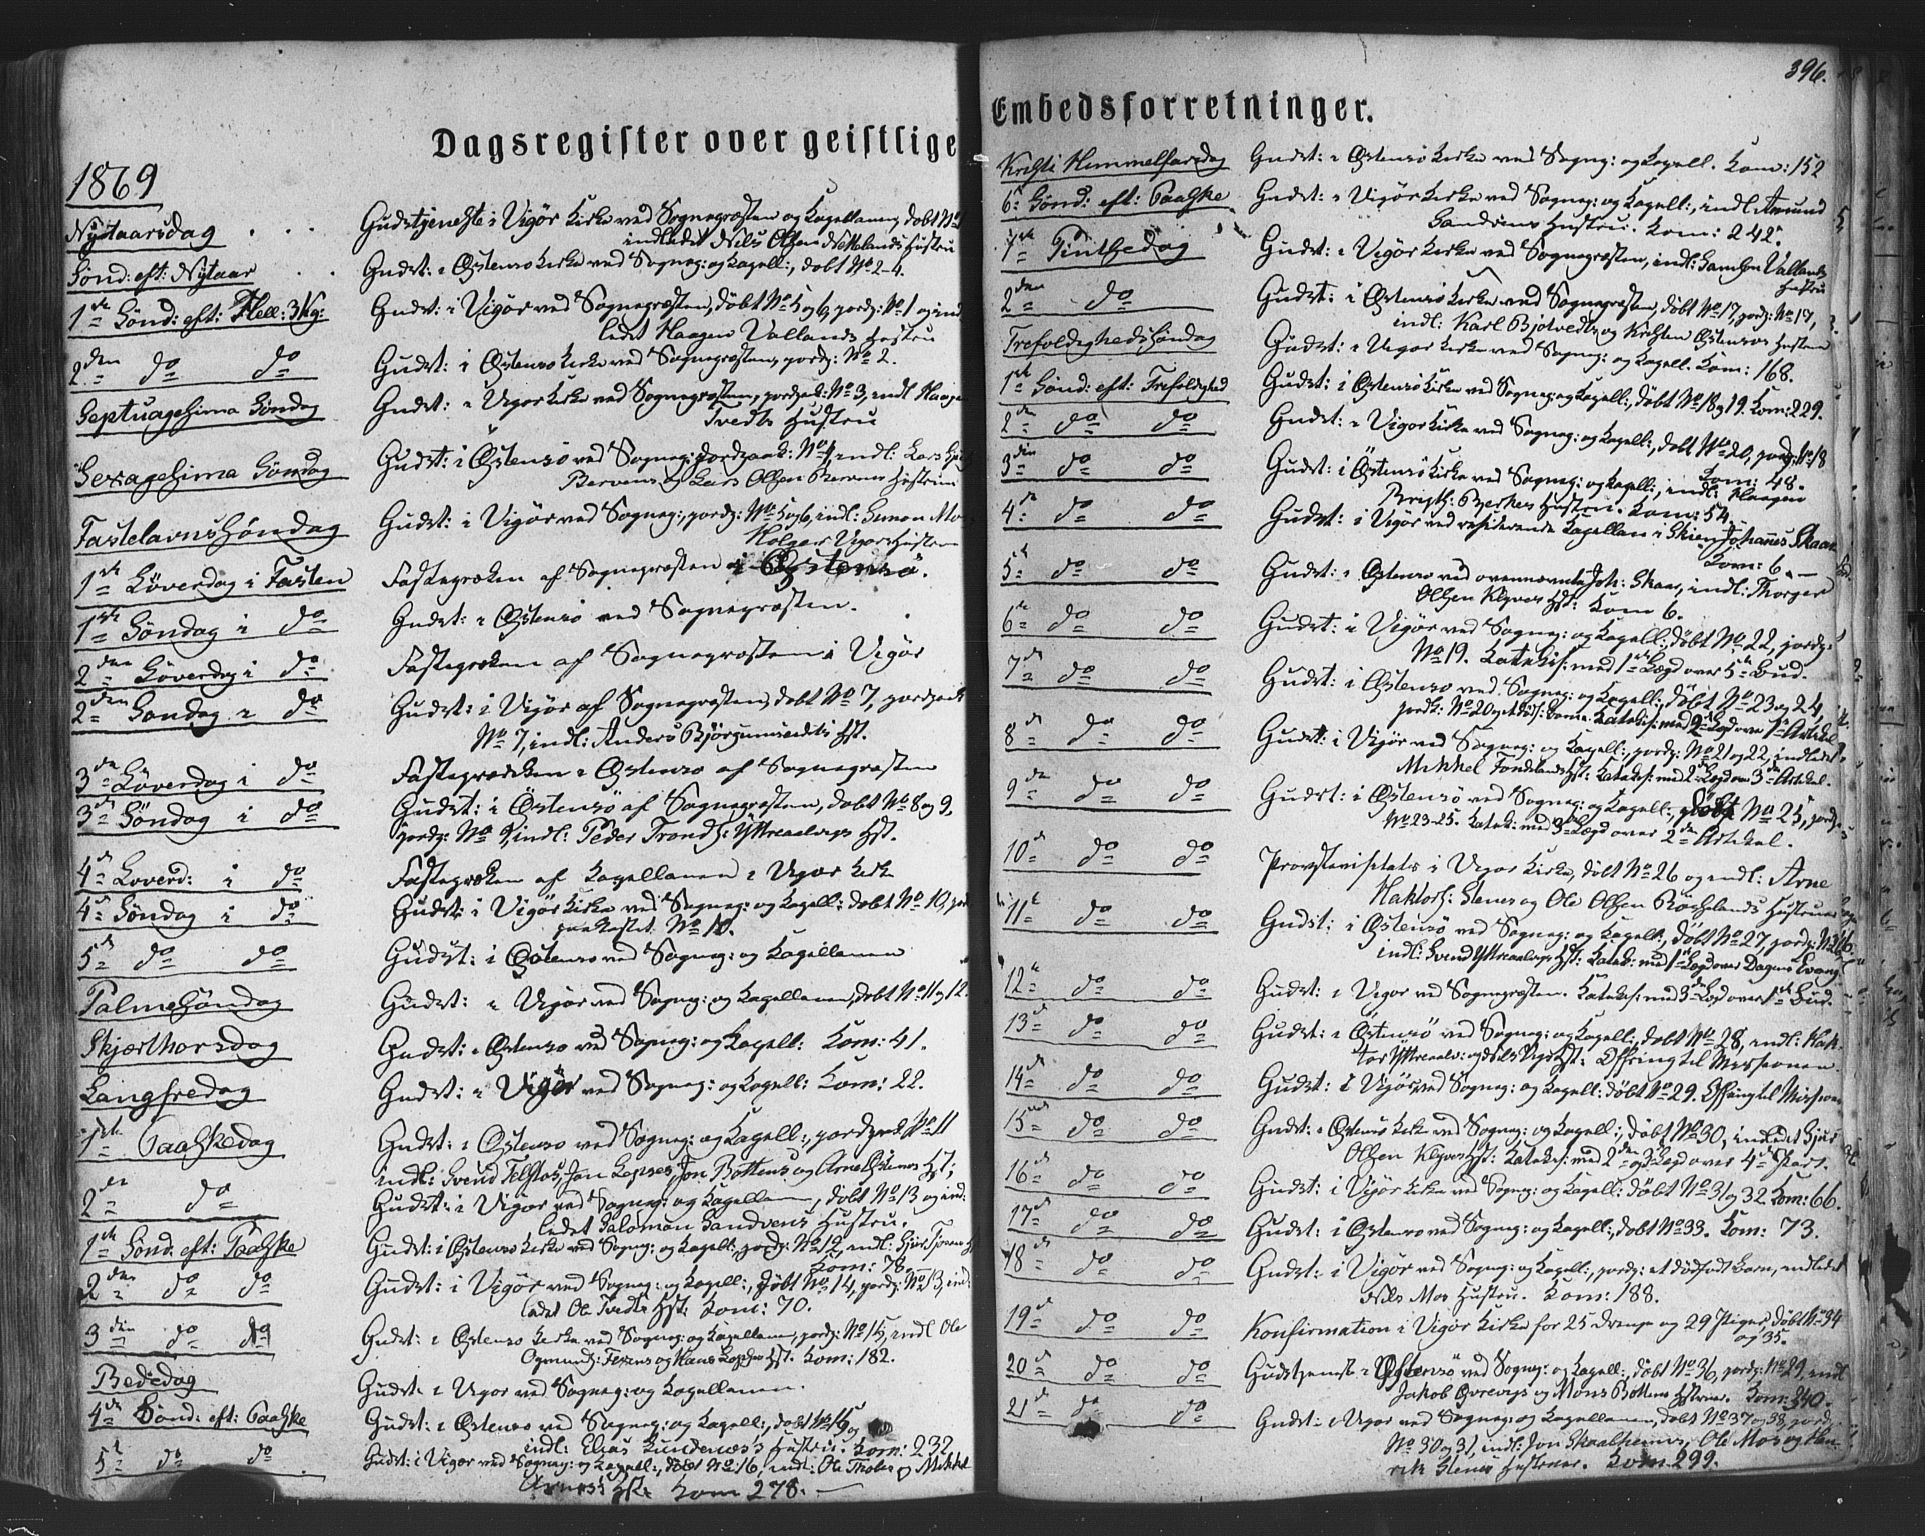 396.
Dagsregister over geistlige Embedsforretninger.
1869
Nytaarsdag . . . Gudstjeneste i Vigör Kirke ved Sognepræsten og Kapellanen, döbt No 1
indledet Nils Olsen Nettelands Hustru
Sönd: eft: Nytaar . . Gudst: i Östensö Kirke ved Sognep: og Kapell:, döbt No 2-4.
1ste Sönd: eft: Hell: 3 Kg: Gudst: i Vigör ved Sognepræsten, döbt No 5 og 6, jordf: No 1 og ind
ledet Haagen Vallands Hustru
2den do do Gudst: i Östensö Kirke ved Sognepræsten, jordf: No 2.
Septuagesima Söndag Gudst: i Vigör Kirke ved Sognepræsten, No 3, indl Haagen
Tvedts Hustru
Sexagesima Söndag Gudst: i Östensö ved Sognep: No 4, indl: Lars
Berven og Lars Olsen Bervens Hustru
Fastelavnssöndag Gudst: i Vigör ved Sognep:, jordf: No 5 og 6, indl: Simon
Holger Vigörs Hustru
1ste Löverdag i Fasten Fastepræken af Sognepræsten i Östensö.
1ste Söndag i do Gudst: i Östensö ved Sognepræsten.
2den Löverdag i do Fastepræken af Sognepræsten i Vigör
2den Söndag i do Gudst: i Vigör af Sognepræsten, döbt No 7,
No 7, indl: Anders Hst.
3die Löverdag i do Fasteprækken i Östensö af Sognepræsten
3die Söndag i do Gudst: i Östensö af Sognepræsten, döbt No 8 og 9,
jordf: No 9, indl: Peder Trondf: Hst.
4de Löverd: i do Fasteprækken af Kapellanen i Vigör Kirke
4de Söndag i do Gudst: i Vigör Kirke ved Sognep: og Kapell: döbt No 10,
No 10.
5te do do Gudst: i Östensö ved Sognep: og Kapellanen
Palmesöndag Gudst: i Vigör ved Sognep: og Kapellanen, döbt No 11 og 12.
Skjærthorsdag Gudst: i Östensö ved Sognep: og Kapell: Kom: 41.
Langfredag Gudst: i Vigör ved Sognep: og Kapell: Kom: 22.
1ste Paaskedag Gudst: i Östensö ved Sognep: og Kapell:, No 11
indl: Svend Jon Botten og Arne Östensös Hst;
2den do Gudst: i Vigör ved Sognep: og Kapellanen, döbt No 13 og ind:
ledet Salomon Sandvens Hustru.
1ste Sönd: eft: Paaske Gudst: i Östensö Kirke ved Sognep: og Kapell: jordf: No 12, indl:
Kom: 78.
2den do do Gudst: i Vigör ved Sognep: og Kapell:, döbt No 14, jordf: No 13, ind:
ledet Ole Tvedts Hst. Kom: 70.
3die do do Gudst: i Östensö Kirke ved Sognep: og Kapellanen, jordf: No 15, indl Ole
Hst. Kom: 182.
Bededag Gudst. i Vigör ved Sognep: og Kapellanen.
4de Sönd: eft: Paaske Gudst: i Östensö ved Sognep: og Kapell:, döbt No 15,
indl: Elias Hustru. Kom: 232
5te do do Gudst: i Vigör ved Sognep: og Kapell:, döbt No 16, indl: Ole og Mikkel
Hst. Kom 278.
Kristi Himmelfarsdag Gudst: i Östensö Kirke ved Sogneg: og Kapell. Kom: 152
6te Sönd: eft: Paaske Gudst: i Vigör Kirke ved Sognep: og Kapell:, indl Amund
Sandvens Hustru. Kom: 242.
1ste Pintsedag Gudst: i Vigör Kirke ved Sognepræsten, indl: Samson Vallands
Hustru
2den do Gudst: i Östensö Kirke ved Sognepræsten, döbt No 17, jordf: No 17,
indl: Karl og Kristen Östensös Hustru
Trefoldighedssöndag Gudst: i Vigör Kirke ved Sognep: og Kapell. Kom: 168.
1ste Sönd: eft: Trefoldighed Gudst: i Östensö Kirke ved Sognep og Kapell:, döbt No 18 og 19. Kom: 229.
2den do do Gudst: i Vigör Kirke ved Sognep: og Kapell:, döbt No 20, jordf: No 18
Kom: 48.
3die do do Gudst: i Östensö Kirke ved Sognep: og Kapell:, indl: Haagen
Hustru. Kom: 54.
4de do do Gudst: i Vigör ved residerende Kapellan i Skien Johannes Skaar
Kom: 6.
5te do do Gudst: i Östensö ved ovennævnte Joh: Skaar, indl: Thorger
Olsen Klyves Hst: Kom 6.
6te do do Gudst: i Vigör ved Sognep: og Kapell: döbt No 22, jordf:
No 19. Katekis: med 1ste Lægd over 5te Bud.
7de do do Gudst: i Östensö ved Sognep: og Kapell:, döbt No 23 og 24,
jordf: No 20 og et dödf: Barn. Katekis: med 2den Lægd over 1ste Artikel
8de do do Gudst: i Vigör ved Sognep: og Kapell:, jordf: No 21 og 22, indledet
Mikkel Hst: Katekis: med 2den Lægd over 3die Artikel.
9de do do Gudst: i Östensö ved Sognep: og Kapell:, döbt No 25, jordf:
No 23-25. Katek: med 3die Lægd over 2den Artikel.
10de do do Provstevisitats i Vigör Kirke, döbt No 26 og indl: Arne
Haktorf: Stenes og Ole Olsen Röselands Hustruer
11te do do Gudst: i Östensö ved Sognep: og Kapell:, döbt No 27, jordf: No 26
indl: Svend Hst: Katek: med 1ste Lægd over Dagens Evang:
12te do do Gudst: i Vigör ved Sognepræsten. Katekis: med 3die Lægd over 1ste Bud.
13de do do Gudst: i Östensö ved Sognep: og Kapell:, döbt No 28, indl: Hak-
tor og Hst: Offring til Missionen.
14de do do Gudst: i Vigör ved Sognep: og Kapell: döbt No 29. Offring til Missionen
15de do do Gudst: i Östensö Kirke ved Sognep: og Kapell:, döbt No 30, indledet
Olsen Klyves Hst: Katekis: med 2den og 3die Lægd over 4de Part.
16de do do Gudst: i Vigör Kirke ved Sognep: og Kapell: döbt No 31 og 32 Kom: 66.
17de do do Gudst: i Östensö ved Sognep: og Kapell:, döbt No 33. Kom: 73.
18de do do Gudst: i Vigör ved Sognep: og Kapell:, jordf: et dödfödt Barn, indledet
Nils Mos Hustru. Kom: 188.
19de do do Konfirmation i Vigör Kirke for 25 Drenge og 29 Piger, döbt No 34
og 35.
20de do do Gudstjeneste i Östensö ved Sognep: og Kapell:, döbt No 36, jordf: No 29, indl
Jakob og Mons Bottens Hstruer. Kom: 240.
21de do do Gudst: i Vigör ved Sognep: og Kapellanen, döbt No 37 og 38, jordf:
No 30 og 31, indl: Jon Skaalheims, Ole Mos og Hen-
rik Stenes Hustruer. Kom 299.